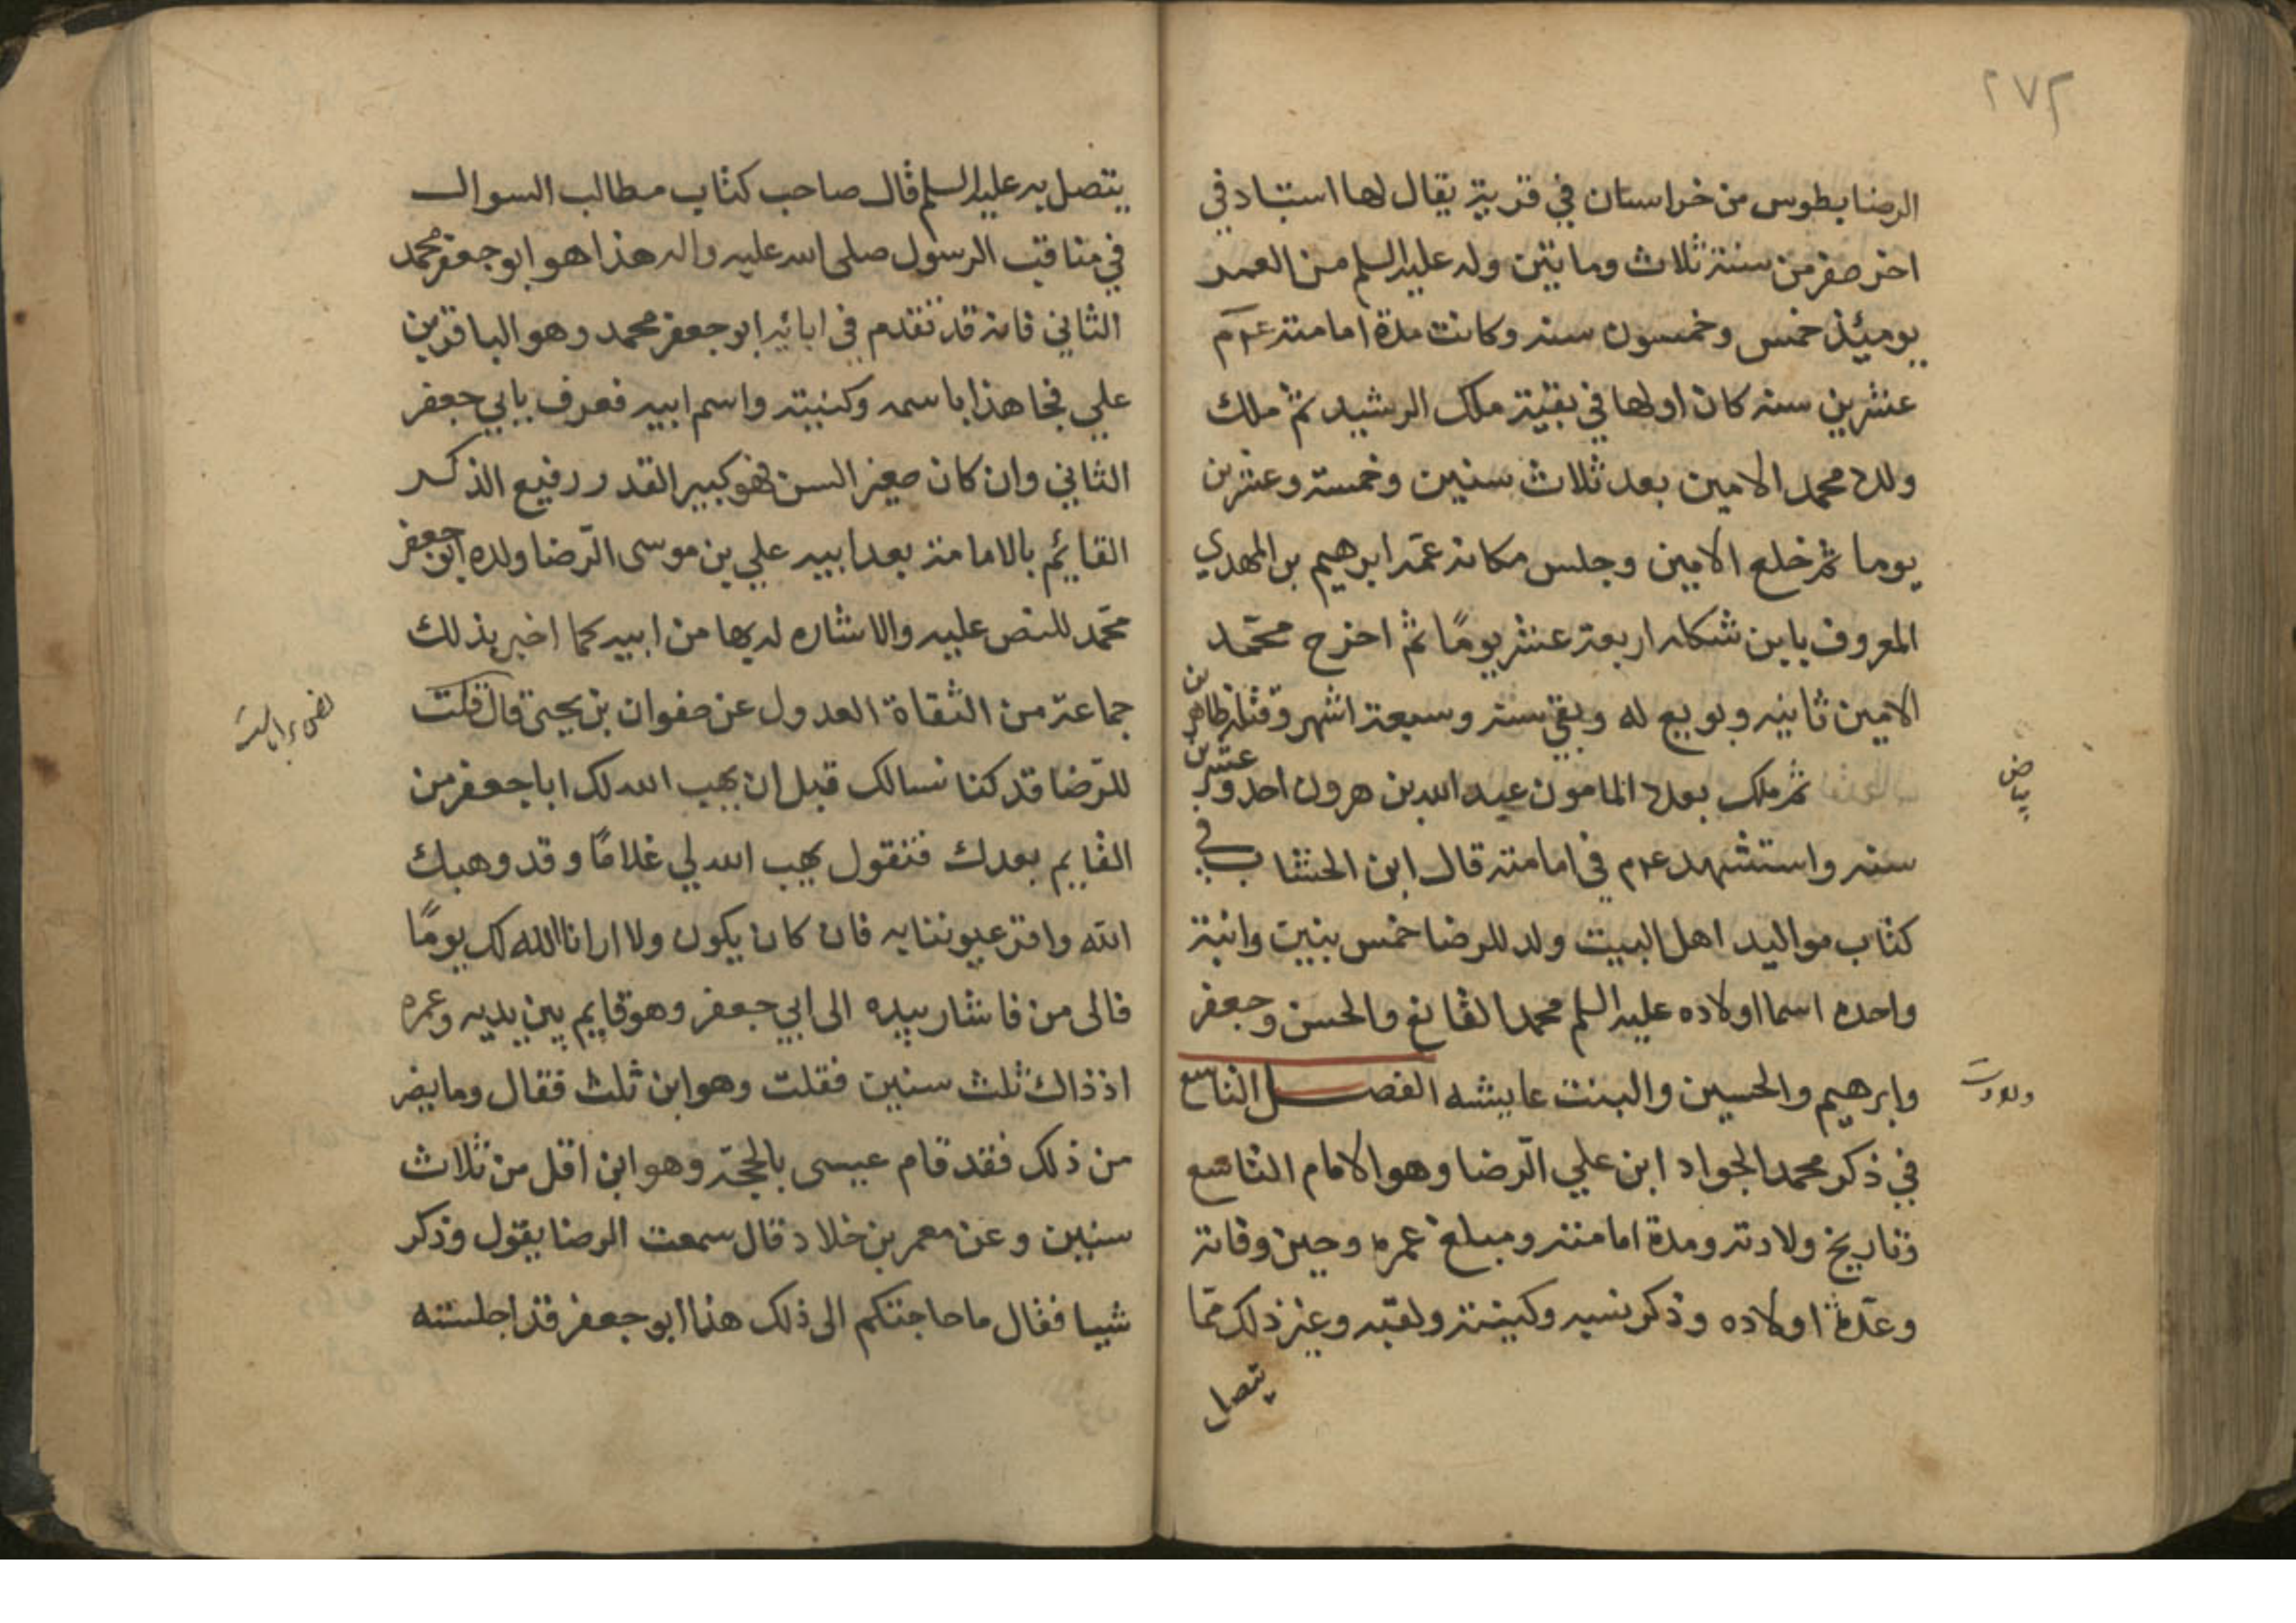 ٢٧٣
الرضا بطوس من خراسان في قرية يقال لها استباد في
اخر صفر من سنة ثلاث وماتين وله عليه السلم من العمر
يوميئذ خمس وخمسون سنه وكانت مدة امامته عم
عشرين سنه كان اولها في بقية ملك الرشيد ثم ملك
ولده محمد الامين بعد ثلاث سنين وخمسة وعشرين
يوما ثم خلع الامين وجلس مكانه عمّه ابرهيم بن المهدي
المعروف بابن شكله اربعة عشر يومًا ثم اخرج محمّد
الامين ثانيه وبويع له وبقي سنة وسبعة اشهر وقتله طاهر بن
ثم ملك بعده المامون عبد الله بن هرون احد وعشرين
بياض
سنه واستشهد عم في امامته قال ابن الخشاب في
كتاب مواليد اهل البيت ولد للرضا خمس بنين وابنة
واحده اسما اولاده عليه السلم محمد القانع والحسن وجعفر
وابرهيم والحسين والبنت عايشه الفصل التاسع
ولادت
في ذكر محمد الجواد ابن علي الرّضا وهو الامام التاسع
وتاريخ ولادته ومدة امامته ومبلغ عمره وحين وفاته
وعدّة اولاده وذكر نسبه وكنيته ولقبه وغير ذلك ممّا
يتصل
يتصل به عليه السلم قال صاحب كتاب مطالب السوال
في مناقب الرسول صلى الله عليه واله هذا هو ابو جعفر محمد
الثاني فانه قد تقدم في ابائه ابو جعفر محمد وهو الباقر بن
علي فجا هذا باسمه وكنيته واسم ابيه فعرف بابي جعفر
الثاني وان كان صغير السن فهو كبير القدر رفيع الذكر
القايئم بالامامة بعد ابيه علي بن موسى الرّضا ولده ابو جعفر
محمّد للنص عليه والاشاره له بها من ابيه كما اخبر بذلك
جماعة من الثقاة العدول عن صفوان بن يحيى قال قلت
للرّضا قد كنا نسالك قبل ان يهب الله لك ابا جعفر من
القايم بعدك فتقول يهب الله لي غلامًا وقد وهبك
الله واقر عيوننا به فان كان يكون ولا ارانا الله لك يومًا
فالى من فاشار بيده الى ابي جعفر وهو قايم بين يديه وعمره
اذ ذاك ثلث سنين فقلت وهو ابن ثلث فقال وما يضر
من ذلك فقد قام عيسى بالحجة وهو ابن اقل من ثلاث
سنيين وعن معمر بن خلاد قال سمعت الرضا يقول وذكر
شيا فقال ما حاجتكم الى ذلك هذا ابو جعفر قد اجلسته